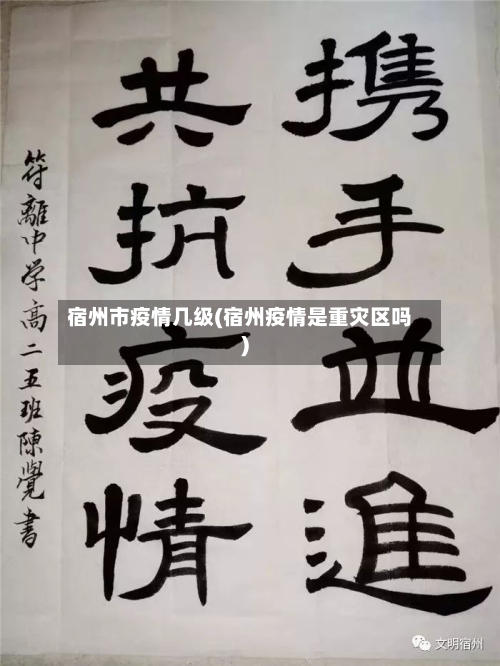 携手並進
共抗疫情
符離中学高二五班陳覺書
宿州市疫情几级(宿州疫情是重灾区吗
)
文明宿州